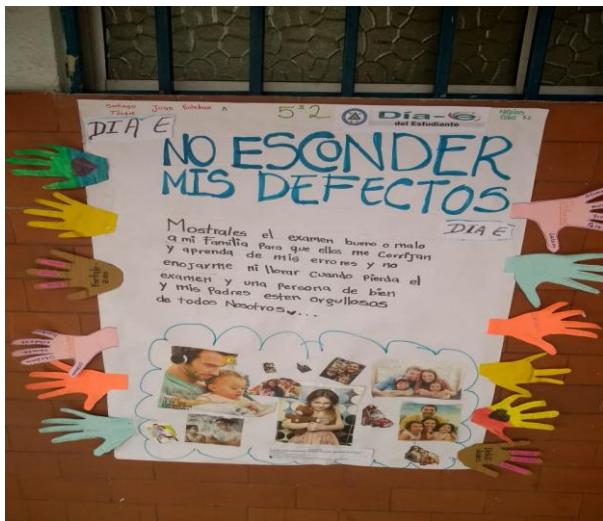 Juan Esteban
5=2
Día-e
del Estudiante
DIA E
NO ESCONDER
MIS DEFECTOS
DIA E
Mostrales el examen bueno o malo
a mi Familia Para que ellos me Corrijan
y aprenda de mis errores y no
enojarme ni llorar Cuando Pierda el
examen y una Persona de bien
y mis Padres esten orgullosos
de todos Nosotros...